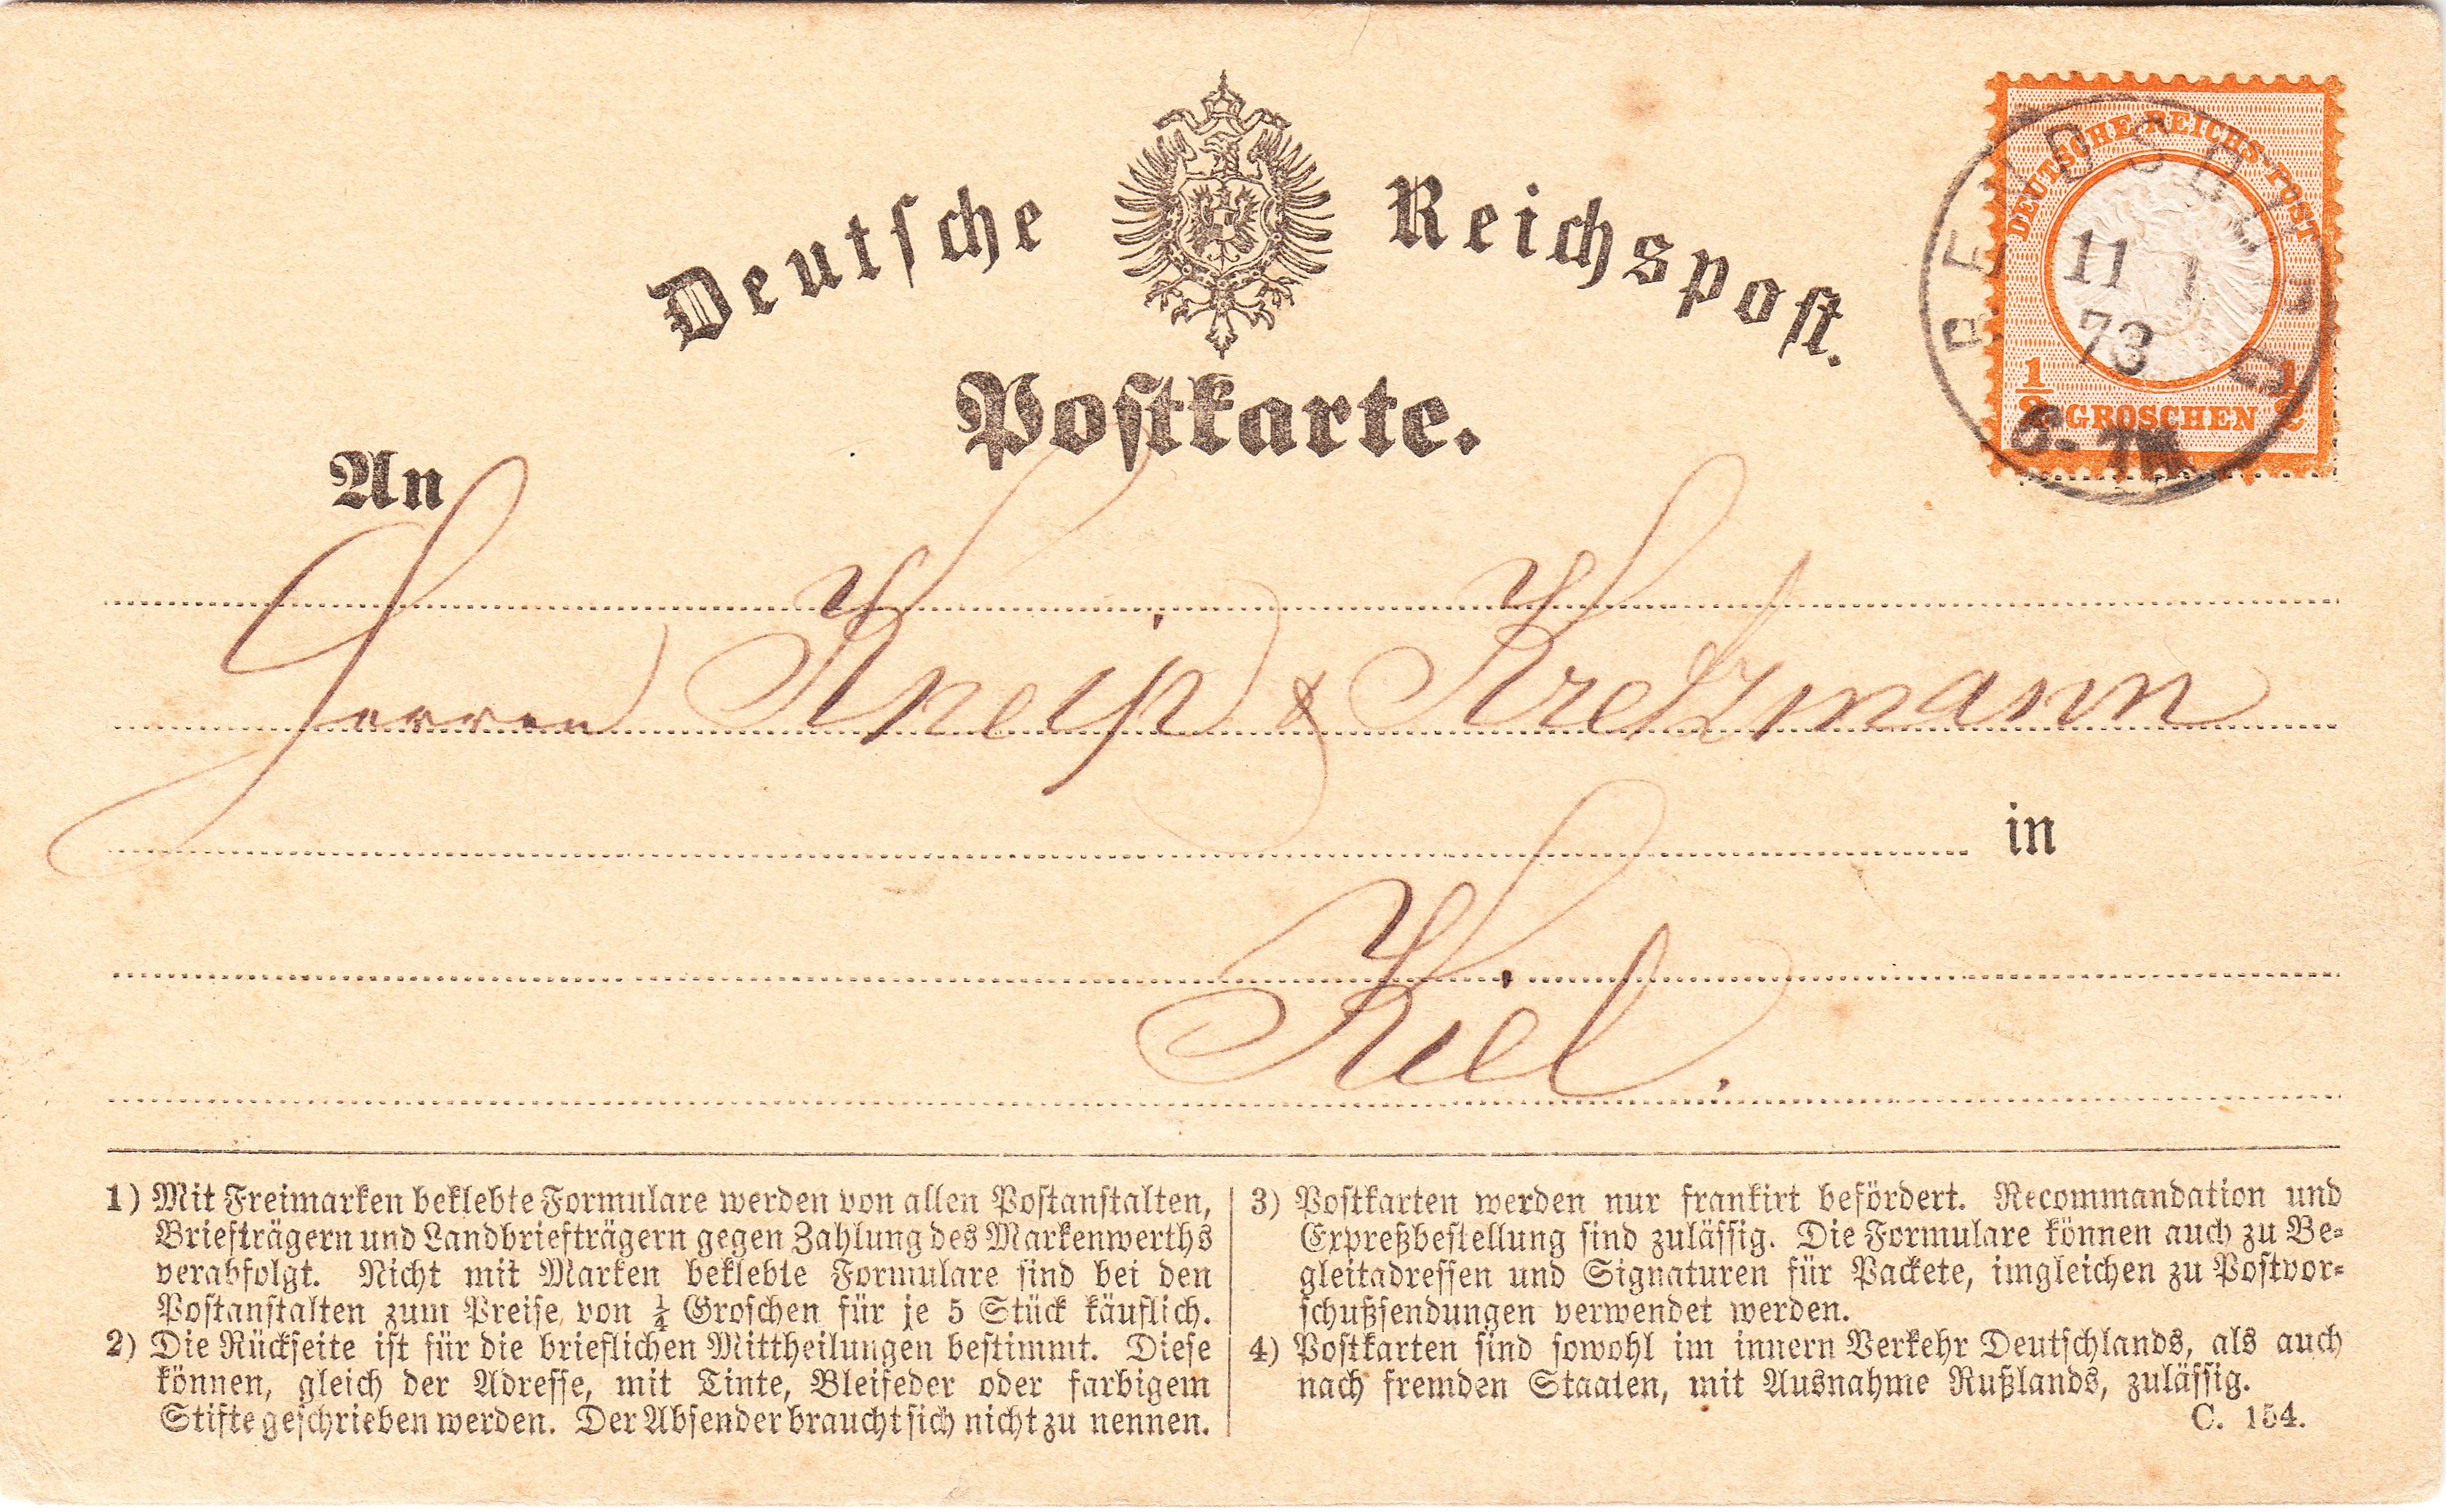 Deutsche Reichspost.
Postkarte.
DEUTSCHE REICHS-POST
1/2 GROSCHEN 1/2
RENDSBURG
11 1
73
6-7N
An
Herren Kneip & Kretzmann
in
Kiel.
1) Mit Freimarken beklebte Formulare werden von allen Postanstalten,
Briefträgern und Landbriefträgern gegen Zahlung des Markenwerths
verabfolgt. Nicht mit Marken beklebte Formulare sind bei den
Postanstalten zum Preise von ¼ Groschen für je 5 Stück käuflich.
2) Die Rückseite ist für die brieflichen Mittheilungen bestimmt. Diese
können, gleich der Adresse, mit Tinte, Bleifeder oder farbigem
Stifte geschrieben werden. Der Absender braucht sich nicht zu nennen.
3) Postkarten werden nur frankirt befördert. Recommandation und
Expreßbestellung sind zulässig. Die Formulare können auch zu Be-
gleitadressen und Signaturen für Packete, imgleichen zu Postvor-
schußsendungen verwendet werden.
4) Postkarten sind sowohl im innern Verkehr Deutschlands, als auch
nach fremden Staaten, mit Ausnahme Rußlands, zulässig.
C. 154.